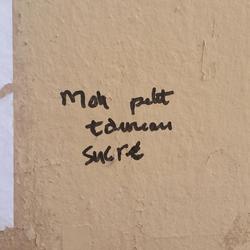 Mon petit
taureau
sucré